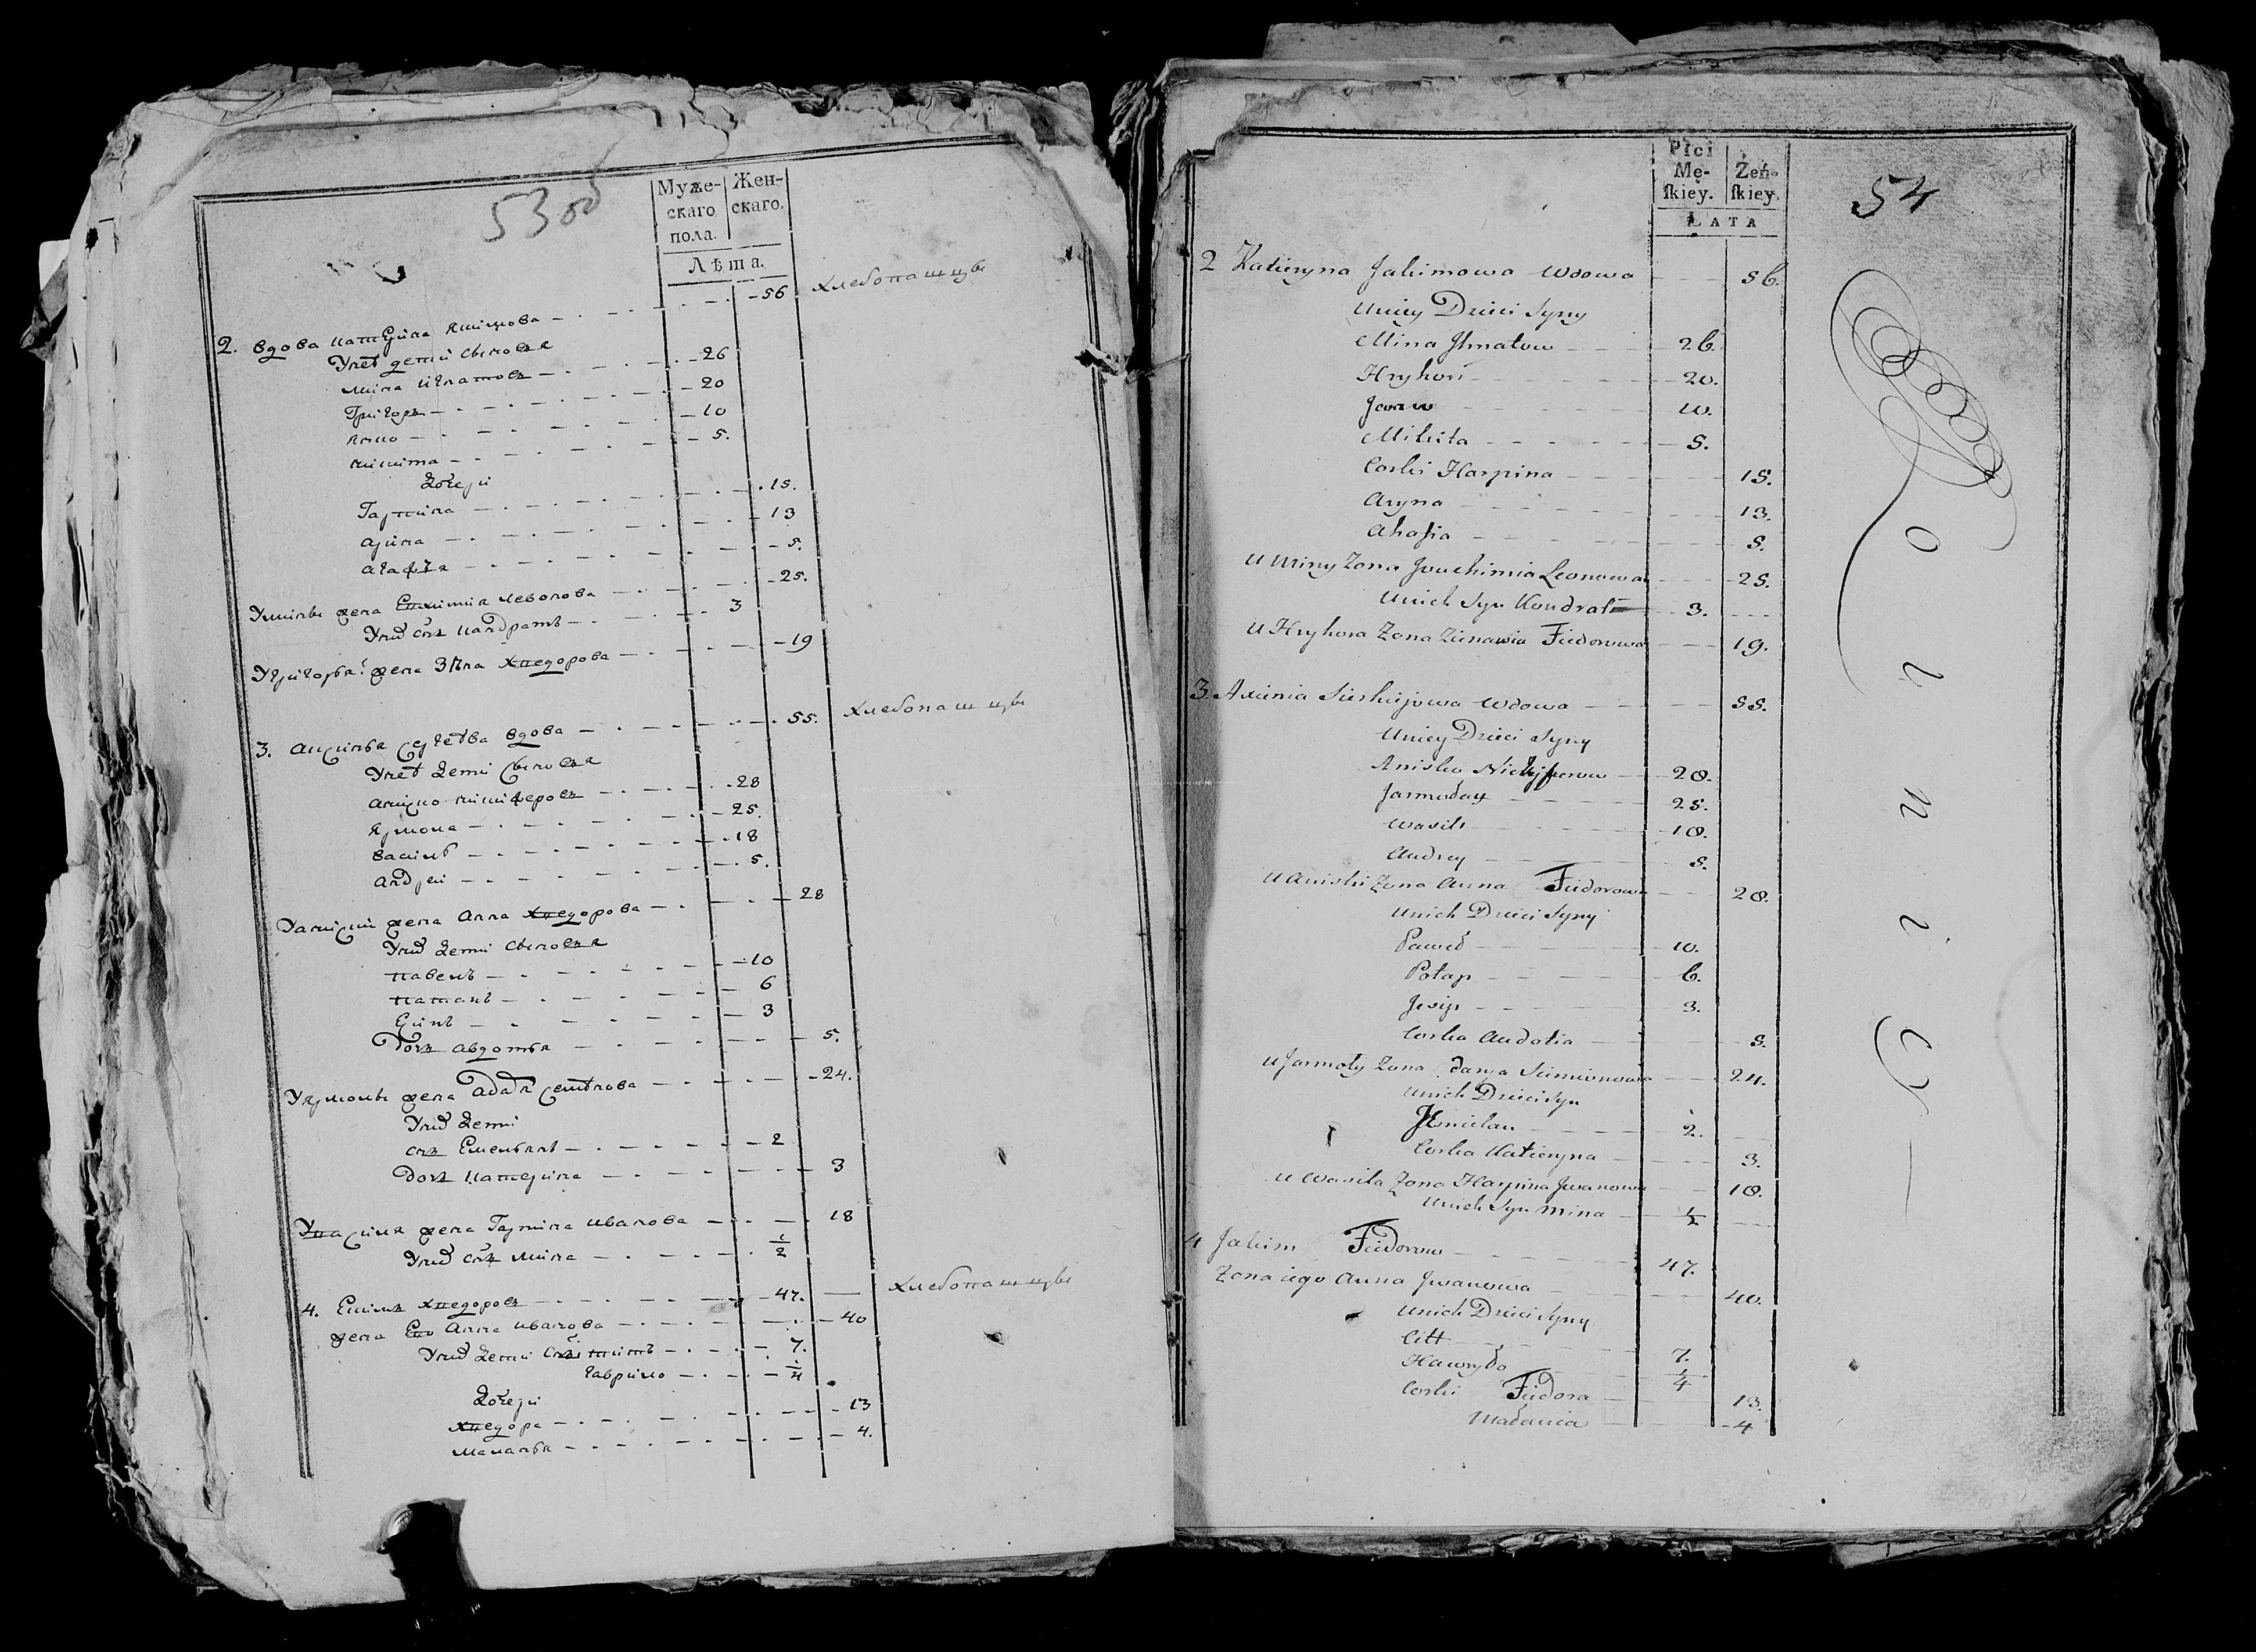 53 об
Муже-
скаго
пола.
Жен-
скаго.
Лѣта.
2. вдова катерина якимова 56 хлебопашцы
Унеѣ дети сыновя
мина игнатовъ 26
Григоръ 20
янко 10
никита 5.
дочери
Гарпина 15.
арина 13
агафѣя 5.
Умины жена Евхимия левонова 25.
Унихъ снъ кандратъ 3
Угригорья жена Зѣна хведорова 19
3. аксинья сергеева вдова 55. хлебопашцы
Унеѣ дети сыновя
аниско никифоровъ 28
ярмола 25.
василь 18
андреи 5.
Уаниски жена анна хведорова 28
Унихъ дети сыновя
павелъ 10
патапъ 6
Есипъ 3
дочъ авдотья 5.
Уярмолы жена дадя семѣнова 24.
Унихъ дети
снъ Емельянъ 2
дочъ катерина 3
Увасиля жена Гарпина иванова 18
Унихъ снъ мина 1/2
4. Екимъ хведоровъ 47. хлебопашцы
жена Ево анна иванова 40
Унихъ дети снъ титъ 7.
гаврило 1/4
дочери
хведора 13
маланья 4.
Płci
Mę-
ſkiey.
Żeń-
ſkiey.
LATA
54
2 Katieryna Jakimowa Wdowa 56.
Uniey Dzieci Syny
Mina Jhnatow 26
Hryhori 20.
Jwan 10.
Mikita 5.
Corki Harpina 15.
Aryna 13.
Ahafia 5.
U Miny Zona Jeuchimia Leonowa 25.
Unich Syn Kondrat 3.
U Hryhora Zona Zienawia Fiedorowa 19.
3. Axinia Sierhiejowa Wdowa 55.
Uniey Dzieci Syny
Anisko Nickyforow 28.
Jarmołay 25.
Wasili 18.
Andrey 5.
U Aniski Zona Anna Fiedorowa 28.
Unich Dzieci Syny
Paweł 10.
Potap 6.
Jesip 3.
Corka Audotia 5.
U Jarmoły Zona Darya Siemionowa 24.
Unich Dzieci Syn
Jemielan 2.
Corka Katieryna 3.
U Wasila Zona Harpina Jwanowa 18.
Unich Syn Mina 1/2
4 Jakim Fiedorow 47.
Zona iego Anna Jwanowa 40.
Unich Dzieci Syny
Citt 7.
Hawryło 1/4
Corki Fiedora 13.
Małania 4